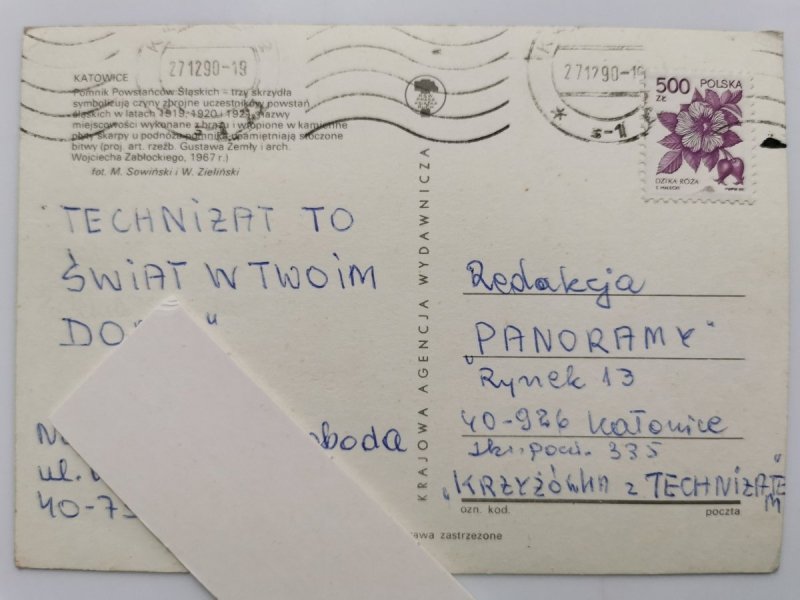 KATOWICE
Pomnik Powstańców Śląskich – trzy skrzydła
symbolizują czyny zbrojne uczestników powstań
śląskich w latach 1919, 1920 i 1921, nazwy
miejscowości wykonane z brązu i wtopione w kamienne
płyty skarpy u podnóża pomnika upamiętniają stoczone
bitwy (proj. art. rzeźb. Gustawa Zemły i arch.
Wojciecha Zabłockiego, 1967 r.)
fot. M. Sowiński i W. Zieliński
27.12.90-19
27.12.90-19
s-1
500
ZŁ
POLSKA
DZIKA RÓŻA
"TECHNIZAT TO
ŚWIAT W TWOIM
oboda
ul.
KRAJOWA AGENCJA WYDAWNICZA
Redakcja
"PANORAMY"
Rynek 13
40-926 Katowice
Skr. poczt. 335
"KRZYŻÓWKA z TECHNIZATEM"
ozn. kod.
poczta
zastrzeżone